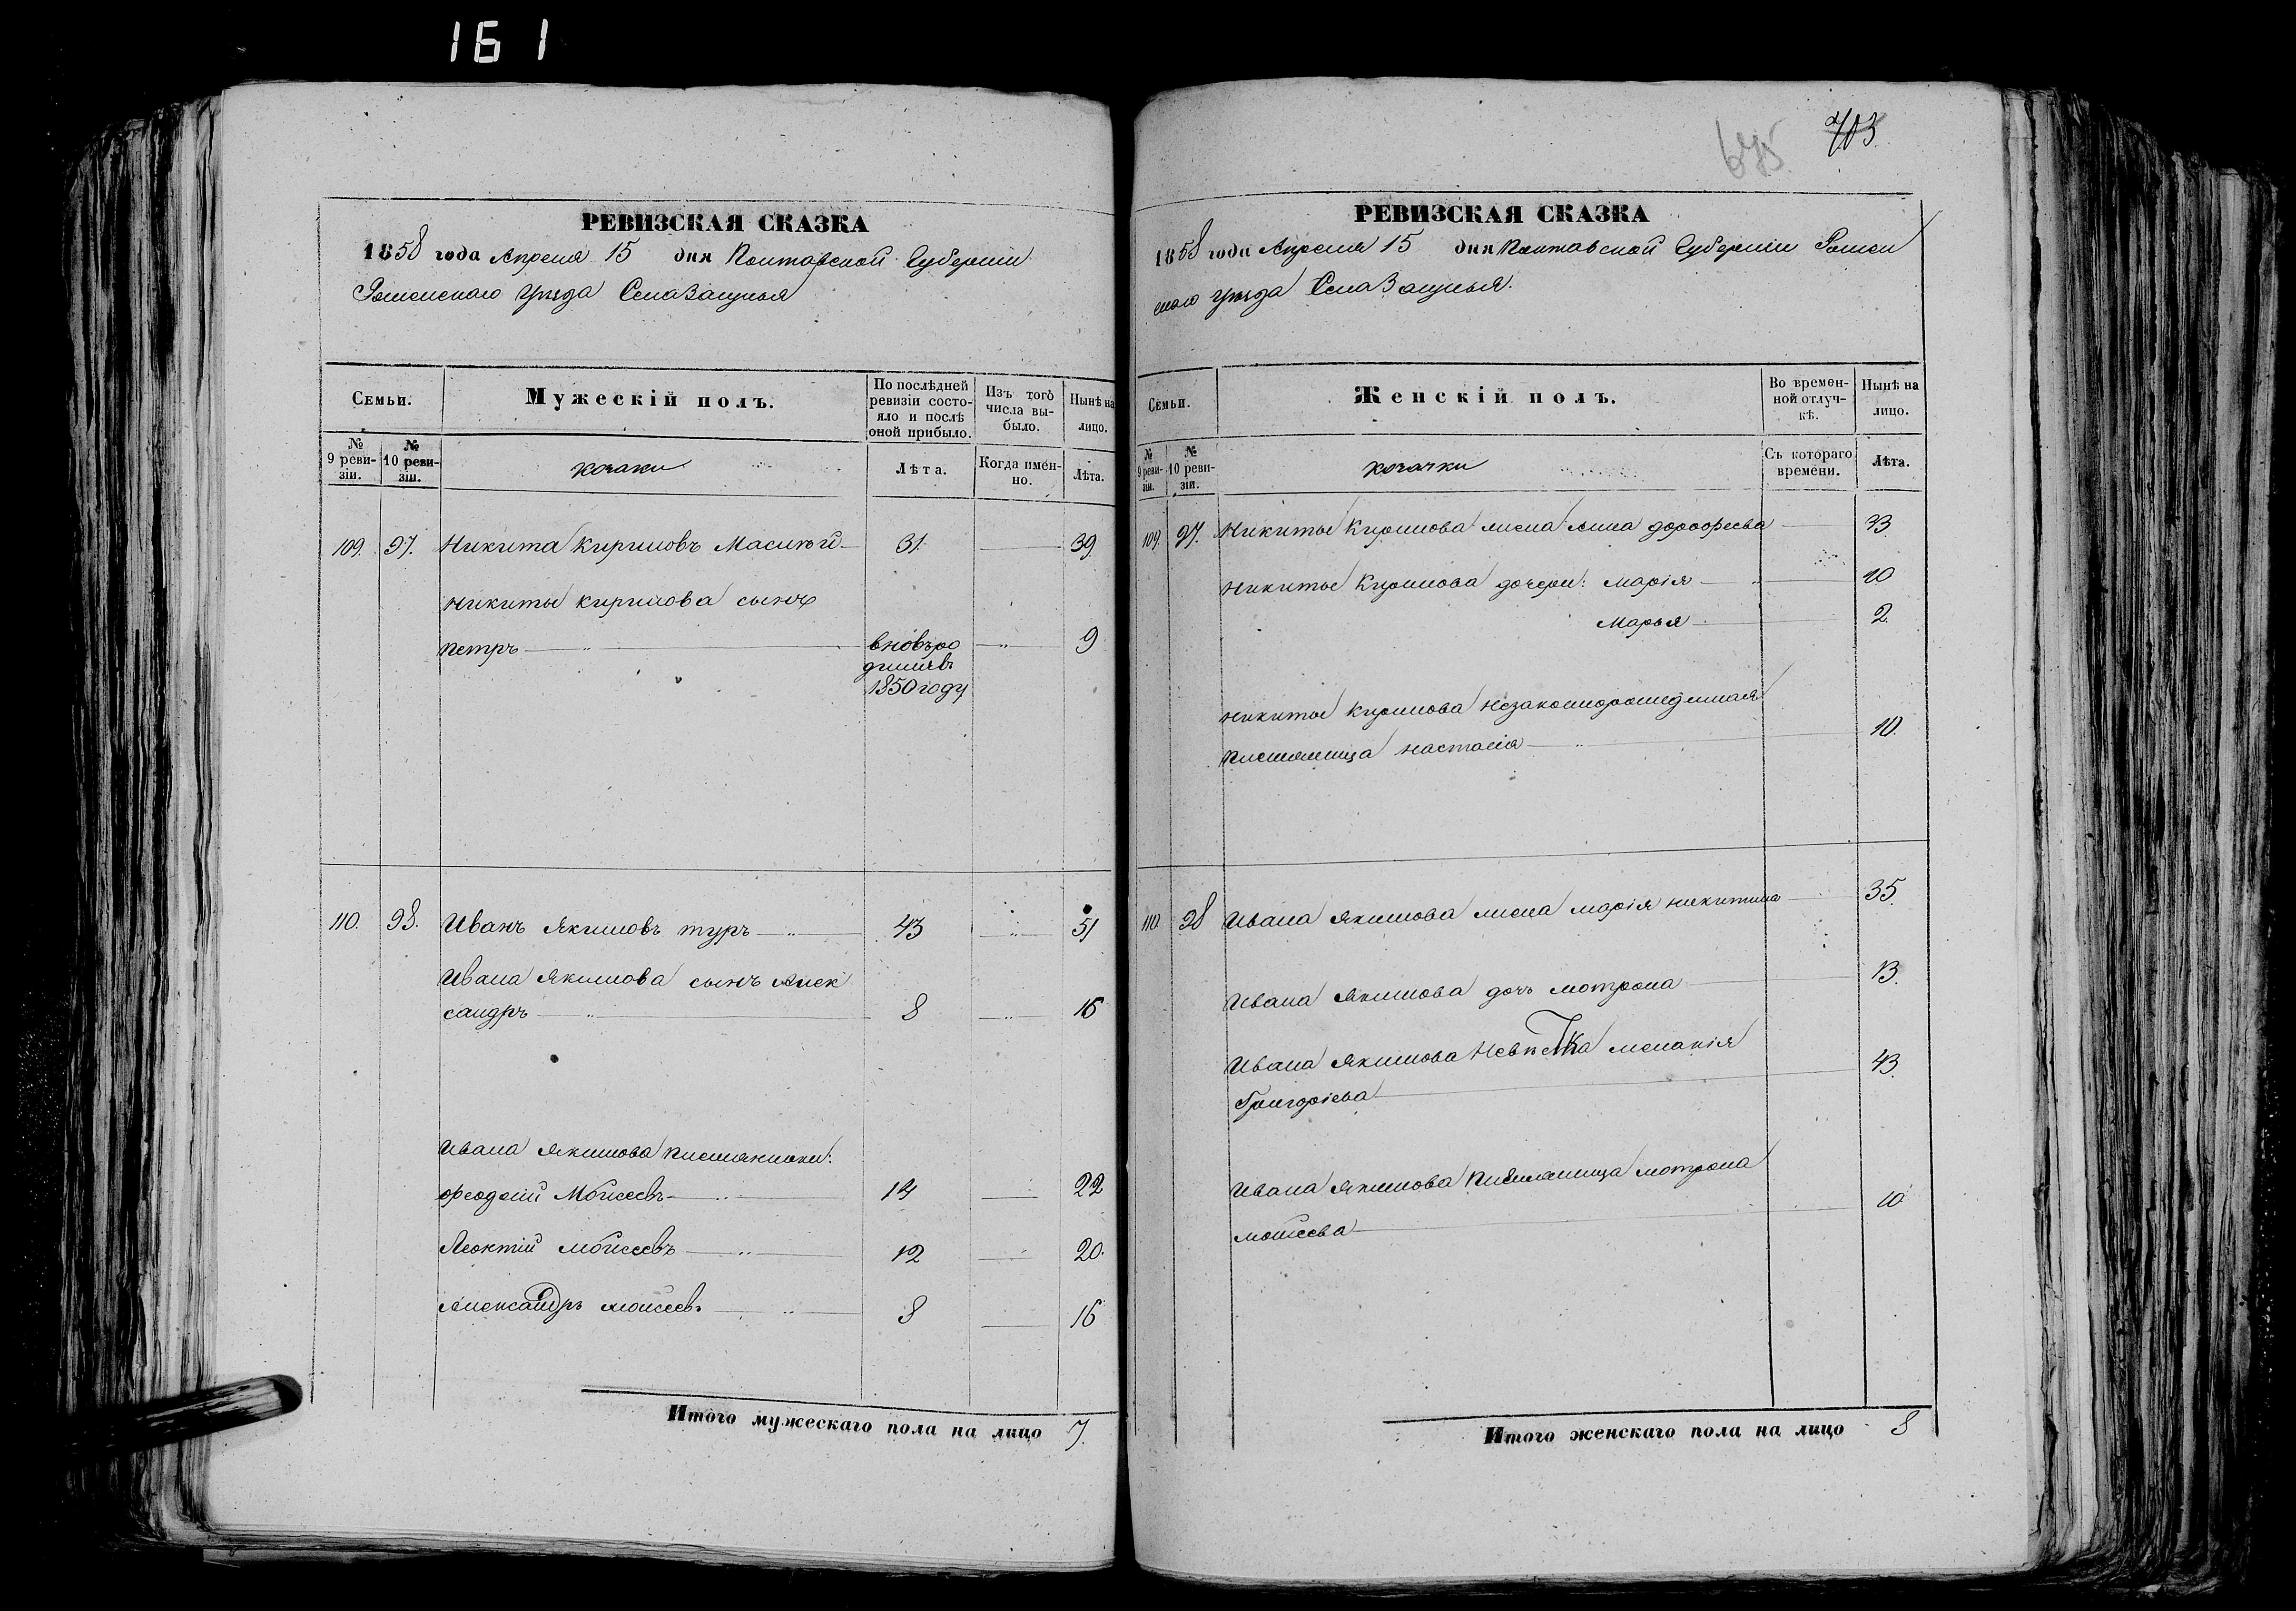 161
РЕВИЗСКАЯ СКАЗКА
1858 года Апреля 15 дня Полтавской Губерніи
Роменскаго Уѣзда Села Засулья
Семьи.
Мужескій полъ.
По послѣдней ревизіи состояло и послѣ оной прибыло.
Изъ того числа выбыло.
Нынѣ на лицо.
№ 9 ревизіи.
№ 10 ревизіи.
козаки
Лѣта.
Когда именно.
Лѣта.
109. 97. Никита Кириловъ 31. 39.
Никиты Кирилова сынъ
петръ вновь ро 9
дился въ
1850 году
110. 98. Иванъ Якимовъ туръ 43 51
Ивана Якимова сынъ Алек
сандръ 8 16
Ивана Якимова племянники:
Ѳеодосій Моисеевъ 14 22
Моисеевъ 12 20.
Александръ Моисеевъ 8 16
Итого мужескаго пола на лицо 7.
675 703
РЕВИЗСКАЯ СКАЗКА
1858 года Апреля 15 дня Полтавской Губерніи Ромен
скаго Уѣзда Села Засулья.
Семьи.
Женскій полъ.
Во временной отлучкѣ.
Нынѣ на лицо.
№ 9 ревизіи.
№ 10 ревизіи.
козачки
Съ котораго времени.
Лѣта.
109. 97. Никиты Кирилова жена анна дорофеева 33.
Никиты Кирилова дочери: Марія 10
Марья 2.
Никиты Кирилова незаконнорожденная
племянница настасія 10.
110. 98 Ивана Якимова жена марія никитина 35.
Ивана Якимова дочь мотрона 13.
Ивана Якимова Невѣстка меланія
Григоріева 43.
Ивана Якимова племянница мотрона
моисеева 10
Итого женскаго пола на лицо 8